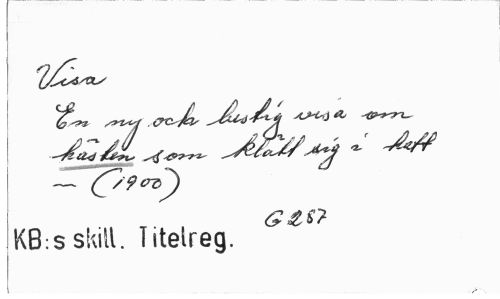 Visa
En ny och lustig visa om
hästen som klätt sig i hatt
— (1900)
G 287
KB:s skill. Titelreg.